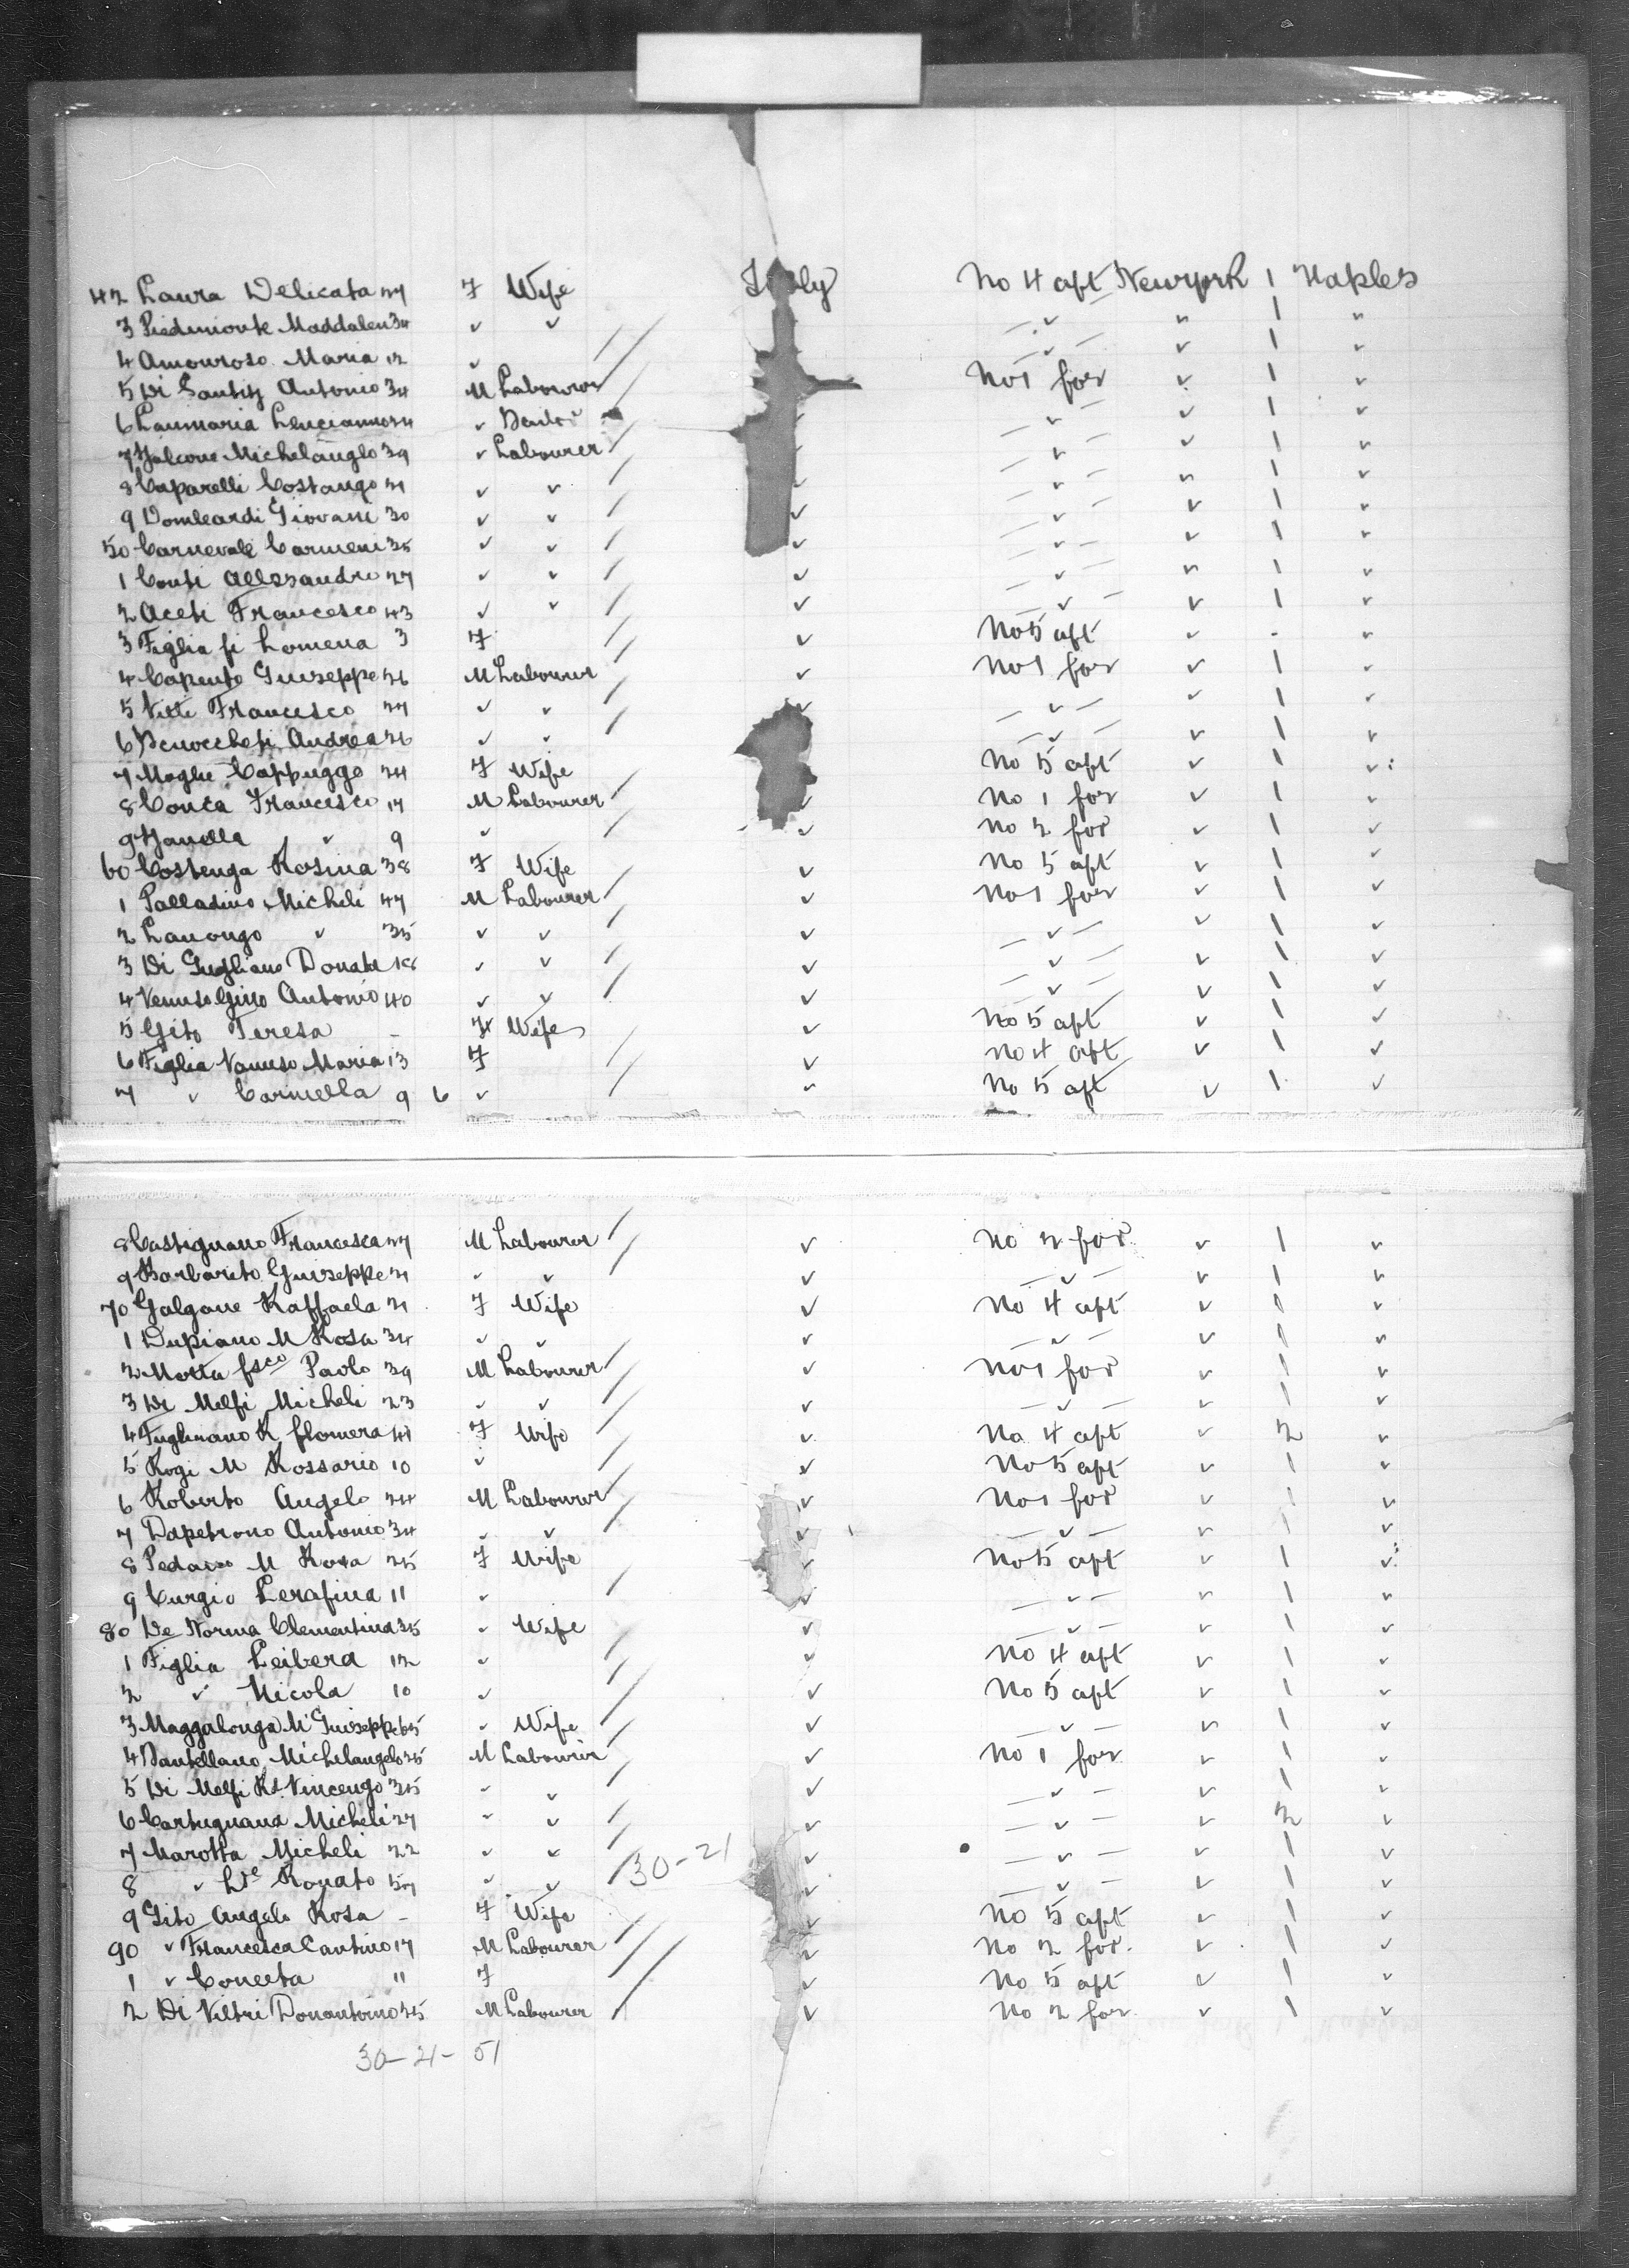 42 Laura Delicata 27 F Wife Italy No 4 aft Newyork 1 Naples
3 Piedmonte Maddalen 34 ✓ ✓ — ✓ — ✓ 1 ✓
4 Amouroso Maria 12 ✓ — ✓ — ✓ 1 ✓
5 Di Santis Antonio 34 M Labourer No 1 for ✓ 1 ✓
6 Laumaria ✓ ✓ — ✓ — ✓ 1 ✓
7 Falcone Michelanglo 39 ✓ Labourer ✓ — ✓ — ✓ 1 ✓
8 Caparelli Costango 21 ✓ ✓ ✓ — ✓ — ✓ 1 ✓
9 Dombardi Giovani 30 ✓ ✓ ✓ — ✓ — ✓ 1 ✓
50 Carnevale Carmeni 35 ✓ ✓ ✓ — ✓ — ✓ 1 ✓
1 Conti Allessandro 27 ✓ ✓ ✓ — ✓ — ✓ 1 ✓
2 Aceti Francesco 43 ✓ ✓ ✓ — ✓ — ✓ 1 ✓
3 Figlia fi Lomena 3 F ✓ No 5 aft ✓ - ✓
4 Caputo Guiseppe 26 M Labourer ✓ No 1 for ✓ 1 ✓
5 Vitti Francesco 27 ✓ ✓ ✓ — ✓ — ✓ 1 ✓
6 Andrea 26 ✓ ✓ — ✓ — ✓ 1 ✓
7 Moglie Cappuggo 24 F Wife No 5 aft ✓ 1 ✓
8 Conca Francesco 17 M Labourer ✓ No 1 for ✓ 1 ✓
9 ✓ 9 ✓ ✓ No 2 for ✓ 1 ✓
60 Costenga Rosina 38 F Wife ✓ No 5 aft ✓ 1 ✓
1 Palladino Micheli 47 M Labourer ✓ No 1 for ✓ 1 ✓
2 Lanongo ✓ 35 ✓ ✓ ✓ — ✓ — ✓ 1 ✓
3 Di Gugliano Donata 18 ✓ ✓ ✓ — ✓ — ✓ 1 ✓
4 Venuso Gino Antonio 40 ✓ ✓ ✓ — ✓ — ✓ 1 ✓
5 Gito Teresa - F Wife ✓ No 5 aft ✓ 1 ✓
6 Figlia Vanuso Maria 13 F ✓ No 4 aft ✓ 1 ✓
7 ✓ Carmella 9 6 ✓ ✓ No 5 aft ✓ 1 ✓
8 Castignano Francesca 27 M Labourer ✓ No 2 for ✓ 1 ✓
9 Barbarito Guiseppe 21 ✓ ✓ ✓ — ✓ — ✓ 1 ✓
70 Galgane Raffaela 21 F Wife ✓ No 4 aft ✓ 1 ✓
1 Dupiano M Rosa 34 ✓ ✓ ✓ — ✓ — ✓ 1 ✓
2 Motta fsco Paolo 39 M Labourer ✓ No 1 for ✓ 1 ✓
3 Di Melfi Micheli 23 ✓ ✓ ✓ — ✓ — ✓ 1 ✓
4 Fuglinano R flomera 41 F Wife ✓ No 4 aft ✓ 2 ✓
5 Rogi M Rossario 10 ✓ ✓ No 5 aft ✓ 1 ✓
6 Roberto Angelo 24 M Labourer ✓ No 1 for ✓ 1 ✓
7 Dapetrono Antonio 34 ✓ ✓ ✓ — ✓ — ✓ 1 ✓
8 Pedano M Rosa 25 F Wife ✓ No 5 aft ✓ 1 ✓
9 Curgio Serafina 11 ✓ ✓ — ✓ — ✓ 1 ✓
80 De Norma Clementina 35 ✓ Wife ✓ — ✓ — ✓ 1 ✓
1 Figlia Leibera 12 ✓ ✓ No 4 aft ✓ 1 ✓
2 ✓ Nicola 10 ✓ ✓ No 5 aft ✓ 1 ✓
3 Maggalonga M Guiseppe 65 ✓ Wife ✓ — ✓ — ✓ 1 ✓
4 Santellano Michelangelo 25 M Labourer ✓ No 1 for ✓ 1 ✓
5 Di Melfi Rd Vincengo 35 ✓ ✓ ✓ — ✓ — ✓ 1 ✓
6 Cartugnana Micheli 27 ✓ ✓ ✓ — ✓ — ✓ 2 ✓
7 Marotta Micheli 22 ✓ ✓ ✓ — ✓ — ✓ 1 ✓
30-21
8 ✓ De Ronato 57 ✓ ✓ ✓ — ✓ — ✓ 1 ✓
9 Gito Angelo Rosa - F Wife ✓ No 5 aft ✓ 1 ✓
90 ✓ Francesca Cantino 17 M Labourer ✓ No 2 for ✓ 1 ✓
1 ✓ Concetta 11 F ✓ No 5 aft ✓ 1 ✓
2 Di Viltri Donantonio 25 M Labourer ✓ No 2 for ✓ 1 ✓
30-21-51